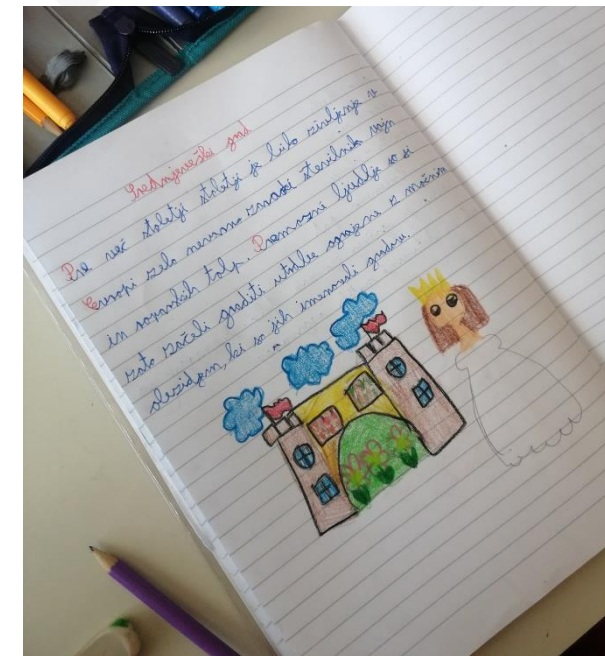 Srednjeveški grad
Pre več stoletji stoletji je bilo življenje v
Evropi zelo nevarno zaradi številnih vojn
in roparskih tolp. Premožni ljudje so si
zato začeli graditi utrdbe ograjene z močnim
obzidjem, ki so jih imenovali gradovi.